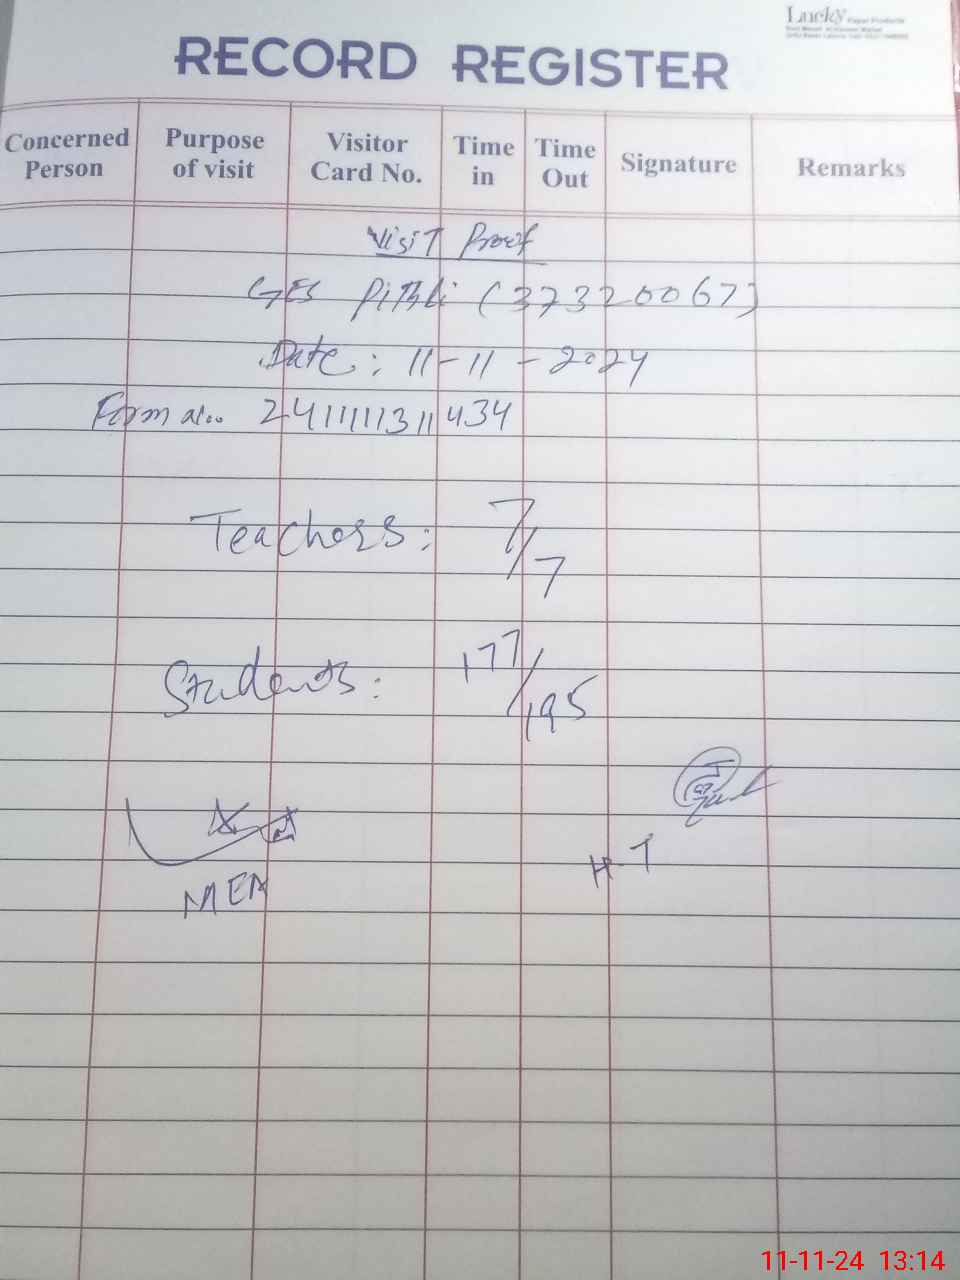 Lucky Paper Products
RECORD REGISTER
Concerned Person
Purpose of visit
Visitor Card No.
Time in
Time Out
Signature
Remarks
Visit Proof
GES (37320067)
Date: 11-11-2024
Form no. 241111131434
Teachers: 7/7
Students: 177/195
MEA
H-T
11-11-24 13:14